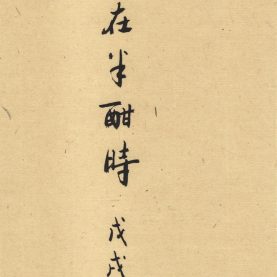 在半酣時 戊戌